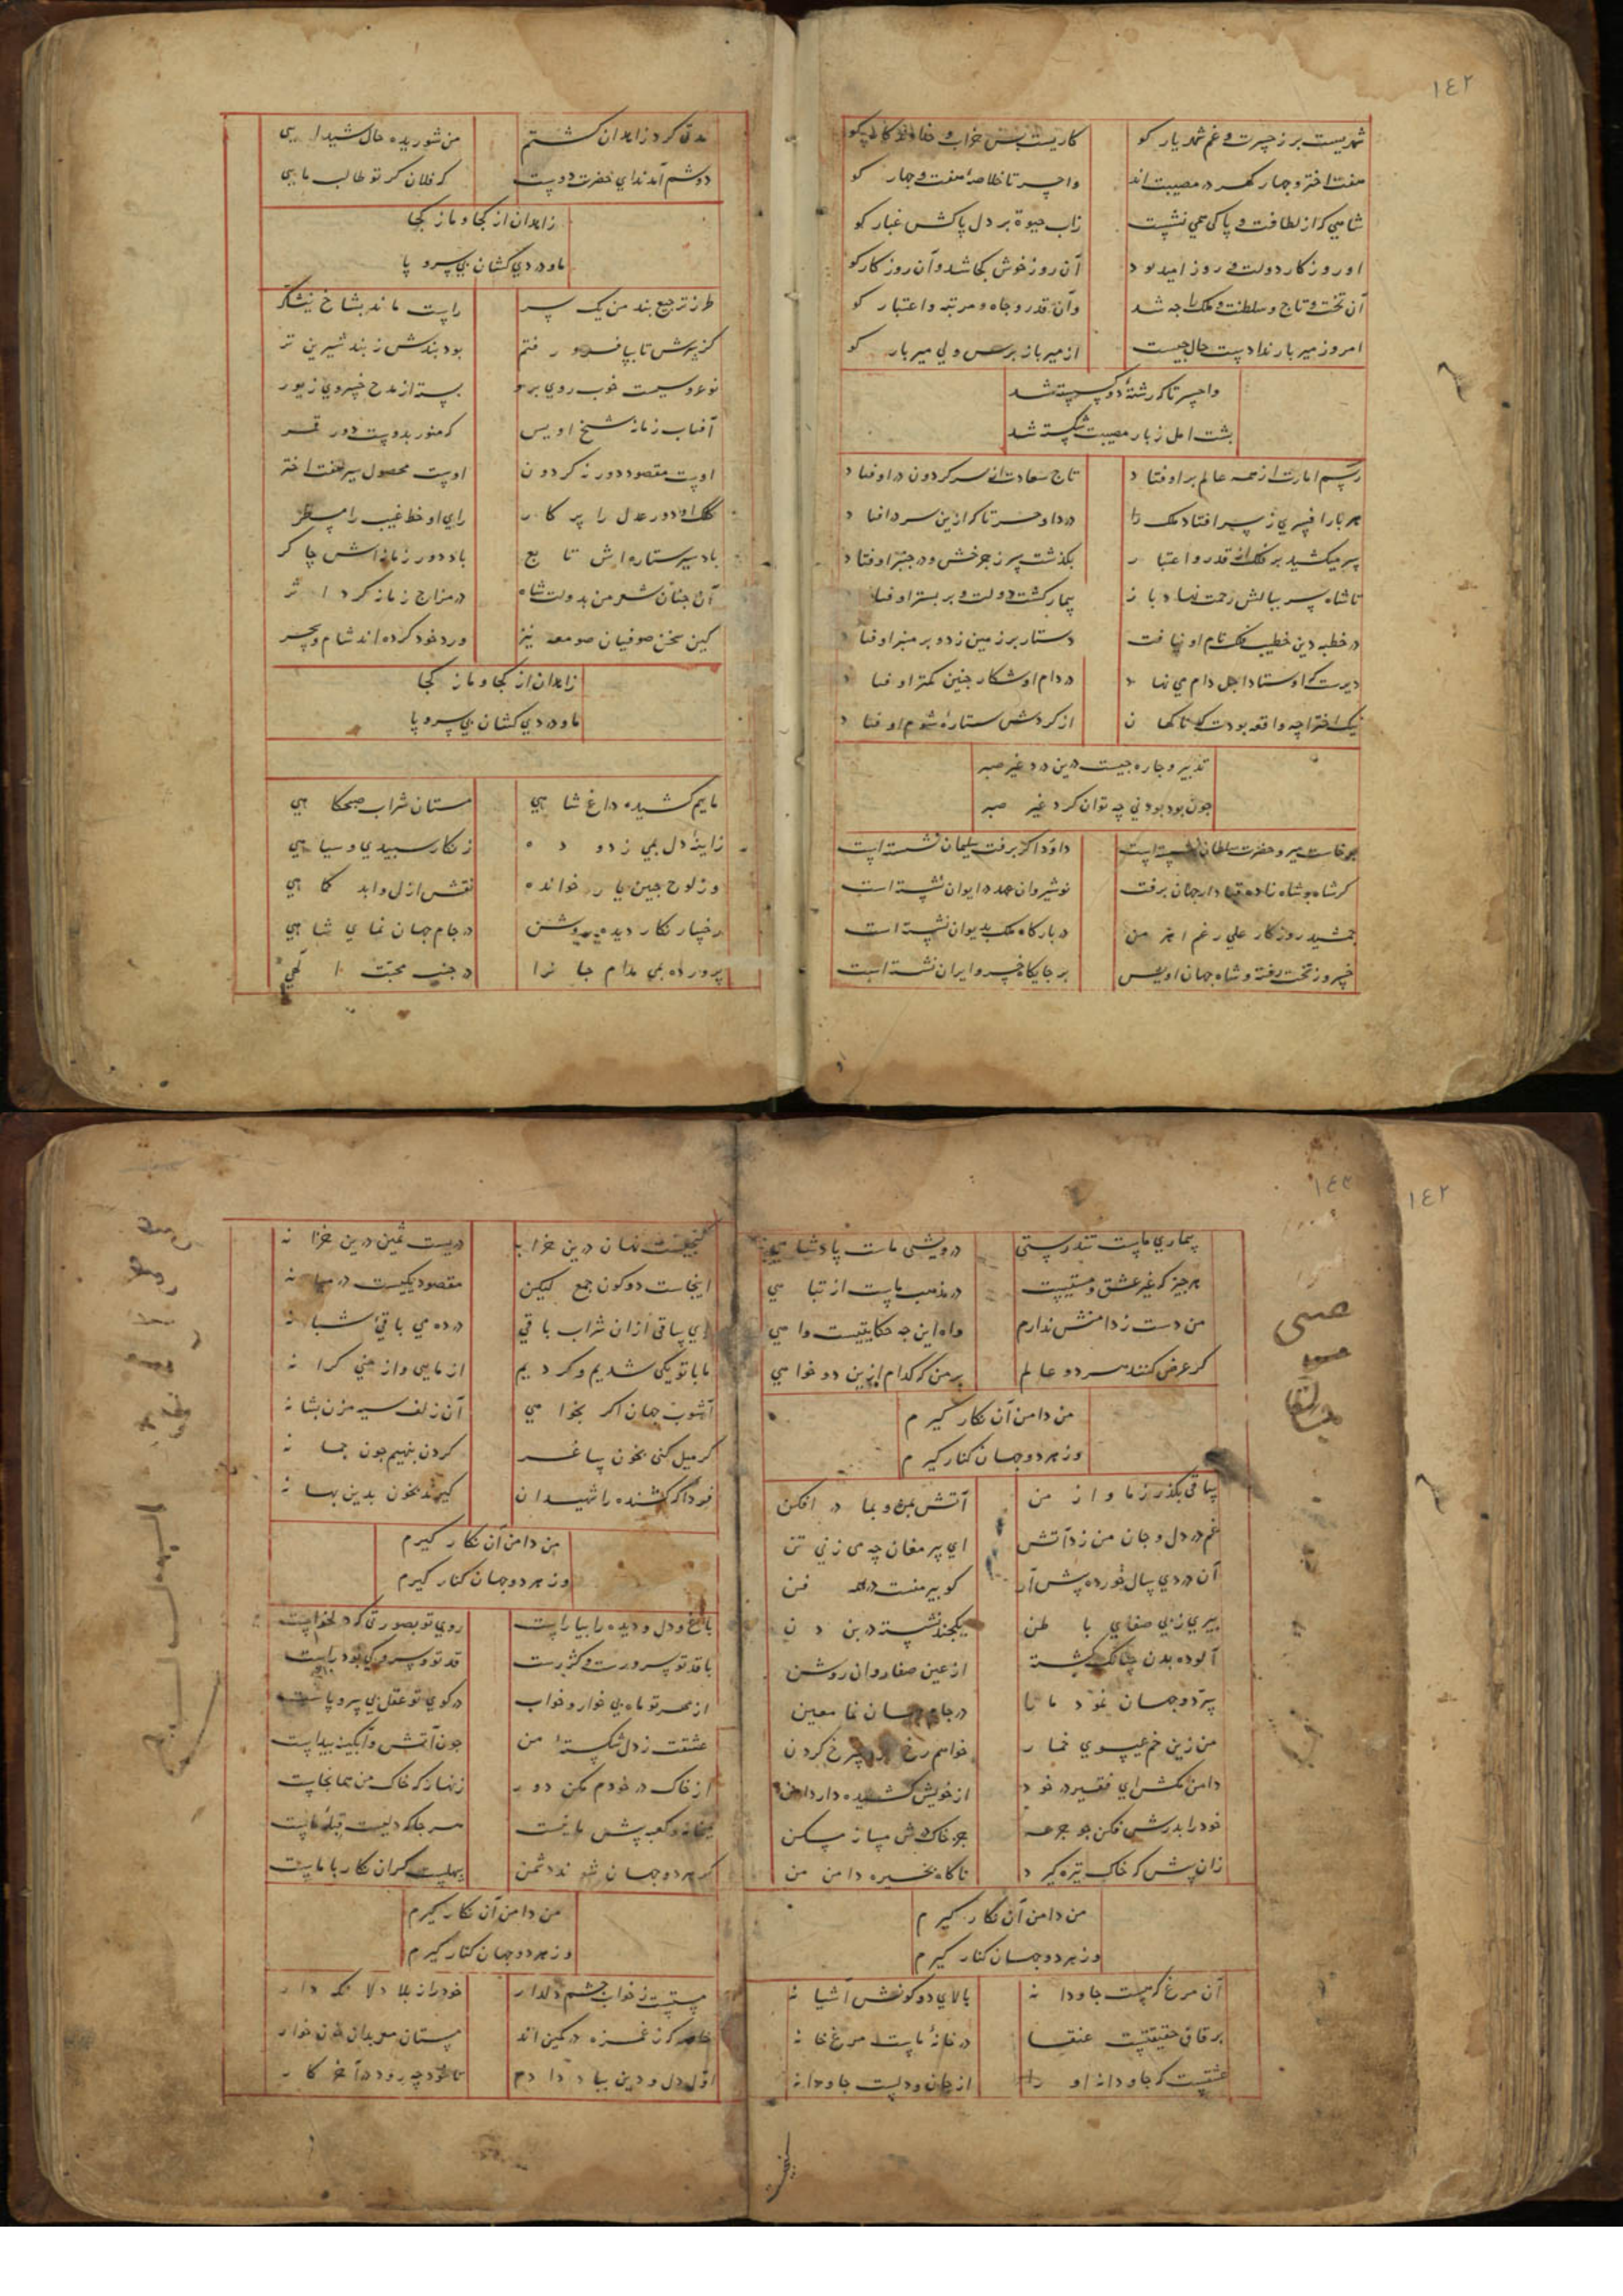 ١٤٢
شهریست پر ز حیرت و غم شهریار کو
کاریست بس خراب و خداوند کار کو
هفت اختر و چهار گهر در مصیبت‌اند
واحسرتا خلاصه هفت و چهار کو
شاهی که از لطافت و پاکی همی نشست
زآب حیوة بر دل پاکش غبار کو
او روزکار دولت و روز امید بود
آن روز خوش کجا شد و آن روزکار کو
آن تخت و تاج و سلطنت و ملک را چه شد
وآن قدر و جاه و مرتبه و اعتبار کو
امروز میر بار ندادست حال چیست
از میر باز پرس ولی میر بار کو
واحسرتا که رشته دو گسسته شد
پشت امل ز بار مصیبت شکسته شد
رسم امارت از همه عالم بر اوفتاد
تاج سعادت از سر گردون در اوفتاد
هر بار افسری ز سر افتاد ملک را
دردا و حسرتا که ازین سر در افتاد
سر میکشید بر فلک از قدر و اعتبار
بگذشت سر ز چرخش و در چنبر اوفتاد
تا شاه سر ببالش زحمت نهاد باز
بیمار گشت دولت و بر بستر اوفتاد
در خطبه دین خطیب فلک نام او نیافت
دستار بر زمین زد و بر منبر اوفتاد
دیرست که اوستاد اجل دام می نهاد
در دام او شکار چنین کمتر اوفتاد
نیک اخترا چه واقعه بودت که ناکهان
از کردش ستاره شوم اوفتاد
تدبیر و چاره چیست درین درد غیر صبر
چون بود بودنی چه توان کرد غیر صبر
برخاست میر و حضرت سلطان نشسته است
داود اکر برفت سلیمان نشسته است
کر شاه و شاه زاده قباد از جهان برفت
نوشیروان عهد در ایوان نشسته است
جمشید روزکار علی رغم اهرمن
در بارگاه ملک بدیوان نشسته است
خسرو ز تخت رفته و شاه جهان اویس
بر جایگاه خسرو ایران نشسته است
مدتی کرد زاهدان کشتم
من شوریده حال شیدایی
دوشم آمد ندای حضرت دوست
که فلان کر تو طالب مایی
زاهدان از کجا و ما ز کجا
ما و دردی کشان بی سر و پا
طرز ترجیع بند من یک سر
راست ماند بشاخ نیشکر
کز سرش تا بپا فرو رفتم
بود بندش ز بند شیرین تر
نوعروسیست خوب روی برو
بسته از مدح خسروی زیور
آفتاب زمانه شیخ اویس
که منور بدوست دور قمر
اوست مقصود دور نه کردون
اوست محصول سیر هفت اختر
کلک او دور عدل را پرکار
رای او خط غیب را مسطر
باد سیر ستاره‌اش تابع
باد دور زمانه‌اش چاکر
آن چنان شعر من بدولت شاه
در مزاج زمانه کرد اثر
کین سخن صوفیان صومعه نیز
ورد خود کرده‌اند شام و سحر
زاهدان از کجا و ما ز کجا
ما و دردی کشان بی سر و پا
ماییم کشیده داغ شاهی
مستان شراب صبحگاهی
زآینه دل بمی زدوده
زنکار سپیدی و سیاهی
وز لوح جبین یار خوانده
نقش ازل و ابد کماهی
رخسار نکار دیده روشن
در جام جهان نمای شاهی
پرورده بمی مدام جانرا
در جنب محبت الهی
١٤٢
بیماری ماست تندرستی
درویشی ماست پادشاهی
هر چیز که غیر عشق و مستیست
در مذهب ماست از تباهی
من دست ز دامنش ندارم
واه این چه حکایتیست واهی
کر عرض کنند هر دو عالم
بر من که کدام ازین دو خواهی
من دامن آن نکار کیرم
وز هر دو جهان کنار کیرم
ساقی بگذر ز ما و از من
آتش و بما در افکن
غم در دل و جان من زد آتش
ای پیر مغان چه می زنی تن
آن دردی سال خورده پیش آر
کو پیر منست در همه فن
پیری ز پی صفای باطن
یکچند نشسته در بن دن
آلوده بدن چنانک کشته
از عین صفا روان روشن
سر دو جهان نمود ما را
در جام جهان نما معین
من زین خم عیسوی خمار
خواهم رخ چرخ کردن
دامن مکش ای فقیر در خود
از خویش کشیده دار دامن
خود را بدرش فکن چو جرعه
جز خاک درش مساز مسکن
زان پیش که خاک تیره کیرد
ناکاه بخیره دامن من
من دامن آن نکار کیرم
وز هر دو جهان کنار کیرم
آن مرغ که هست جاودانه
بالای دو کونش آشیانه
بر قاف حقیقتست عنقا
در خانه ماست مرغ خانه
عشقست که جاودانه او را
از جان و دلست جاودانه
کنجیست نهان درین خرابه
دریست ثمین درین خزانه
اینجاست دو کون جمع لیکن
مقصود یکیست در میانه
ای ساقی ازان شراب باقی
در ده می باقی شبانه
ما با تو یکی شدیم و کردیم
از مایی و از منی کرانه
آشوب جهان اکر نخواهی
آن زلف سیه مزن بشانه
کر میل کنی بخون ساغر
کردن بنهیم چون چمانه
فردا که کشنده را شهیدان
کیرند بخون بدین بهانه
من دامن آن نکار کیرم
وز هر دو جهان کنار کیرم
باغ و دل و دیده را بیاراست
روی تو بصورتی که دلخواست
با قد تو سرو رست و کژ رست
قد تو و سرو کی بود راست
از مهر تو ماه بی خور و خواب
در کوی تو عقل بی سر و پاست
عشقت ز دل شکسته من
چون آتش و آبگینه پیداست
از خاک در خودم مکن دور
زنهار که خاک من همانجاست
بتخانه و کعبه پیش ما نیست
هر جا که دلیست قبله ماست
کر هر دو جهان شوند دشمن
سهلست کران نکار با ماست
من دامن آن نکار کیرم
وز هر دو جهان کنار کیرم
مستست ز خواب چشم دلدار
خود را ز بلا دلا نکه دار
که ز غمزه در کمین‌اند
مستان معربدان خون خوار
اول دل و دین بباد دادم
تا خود چه رود در آخر کار